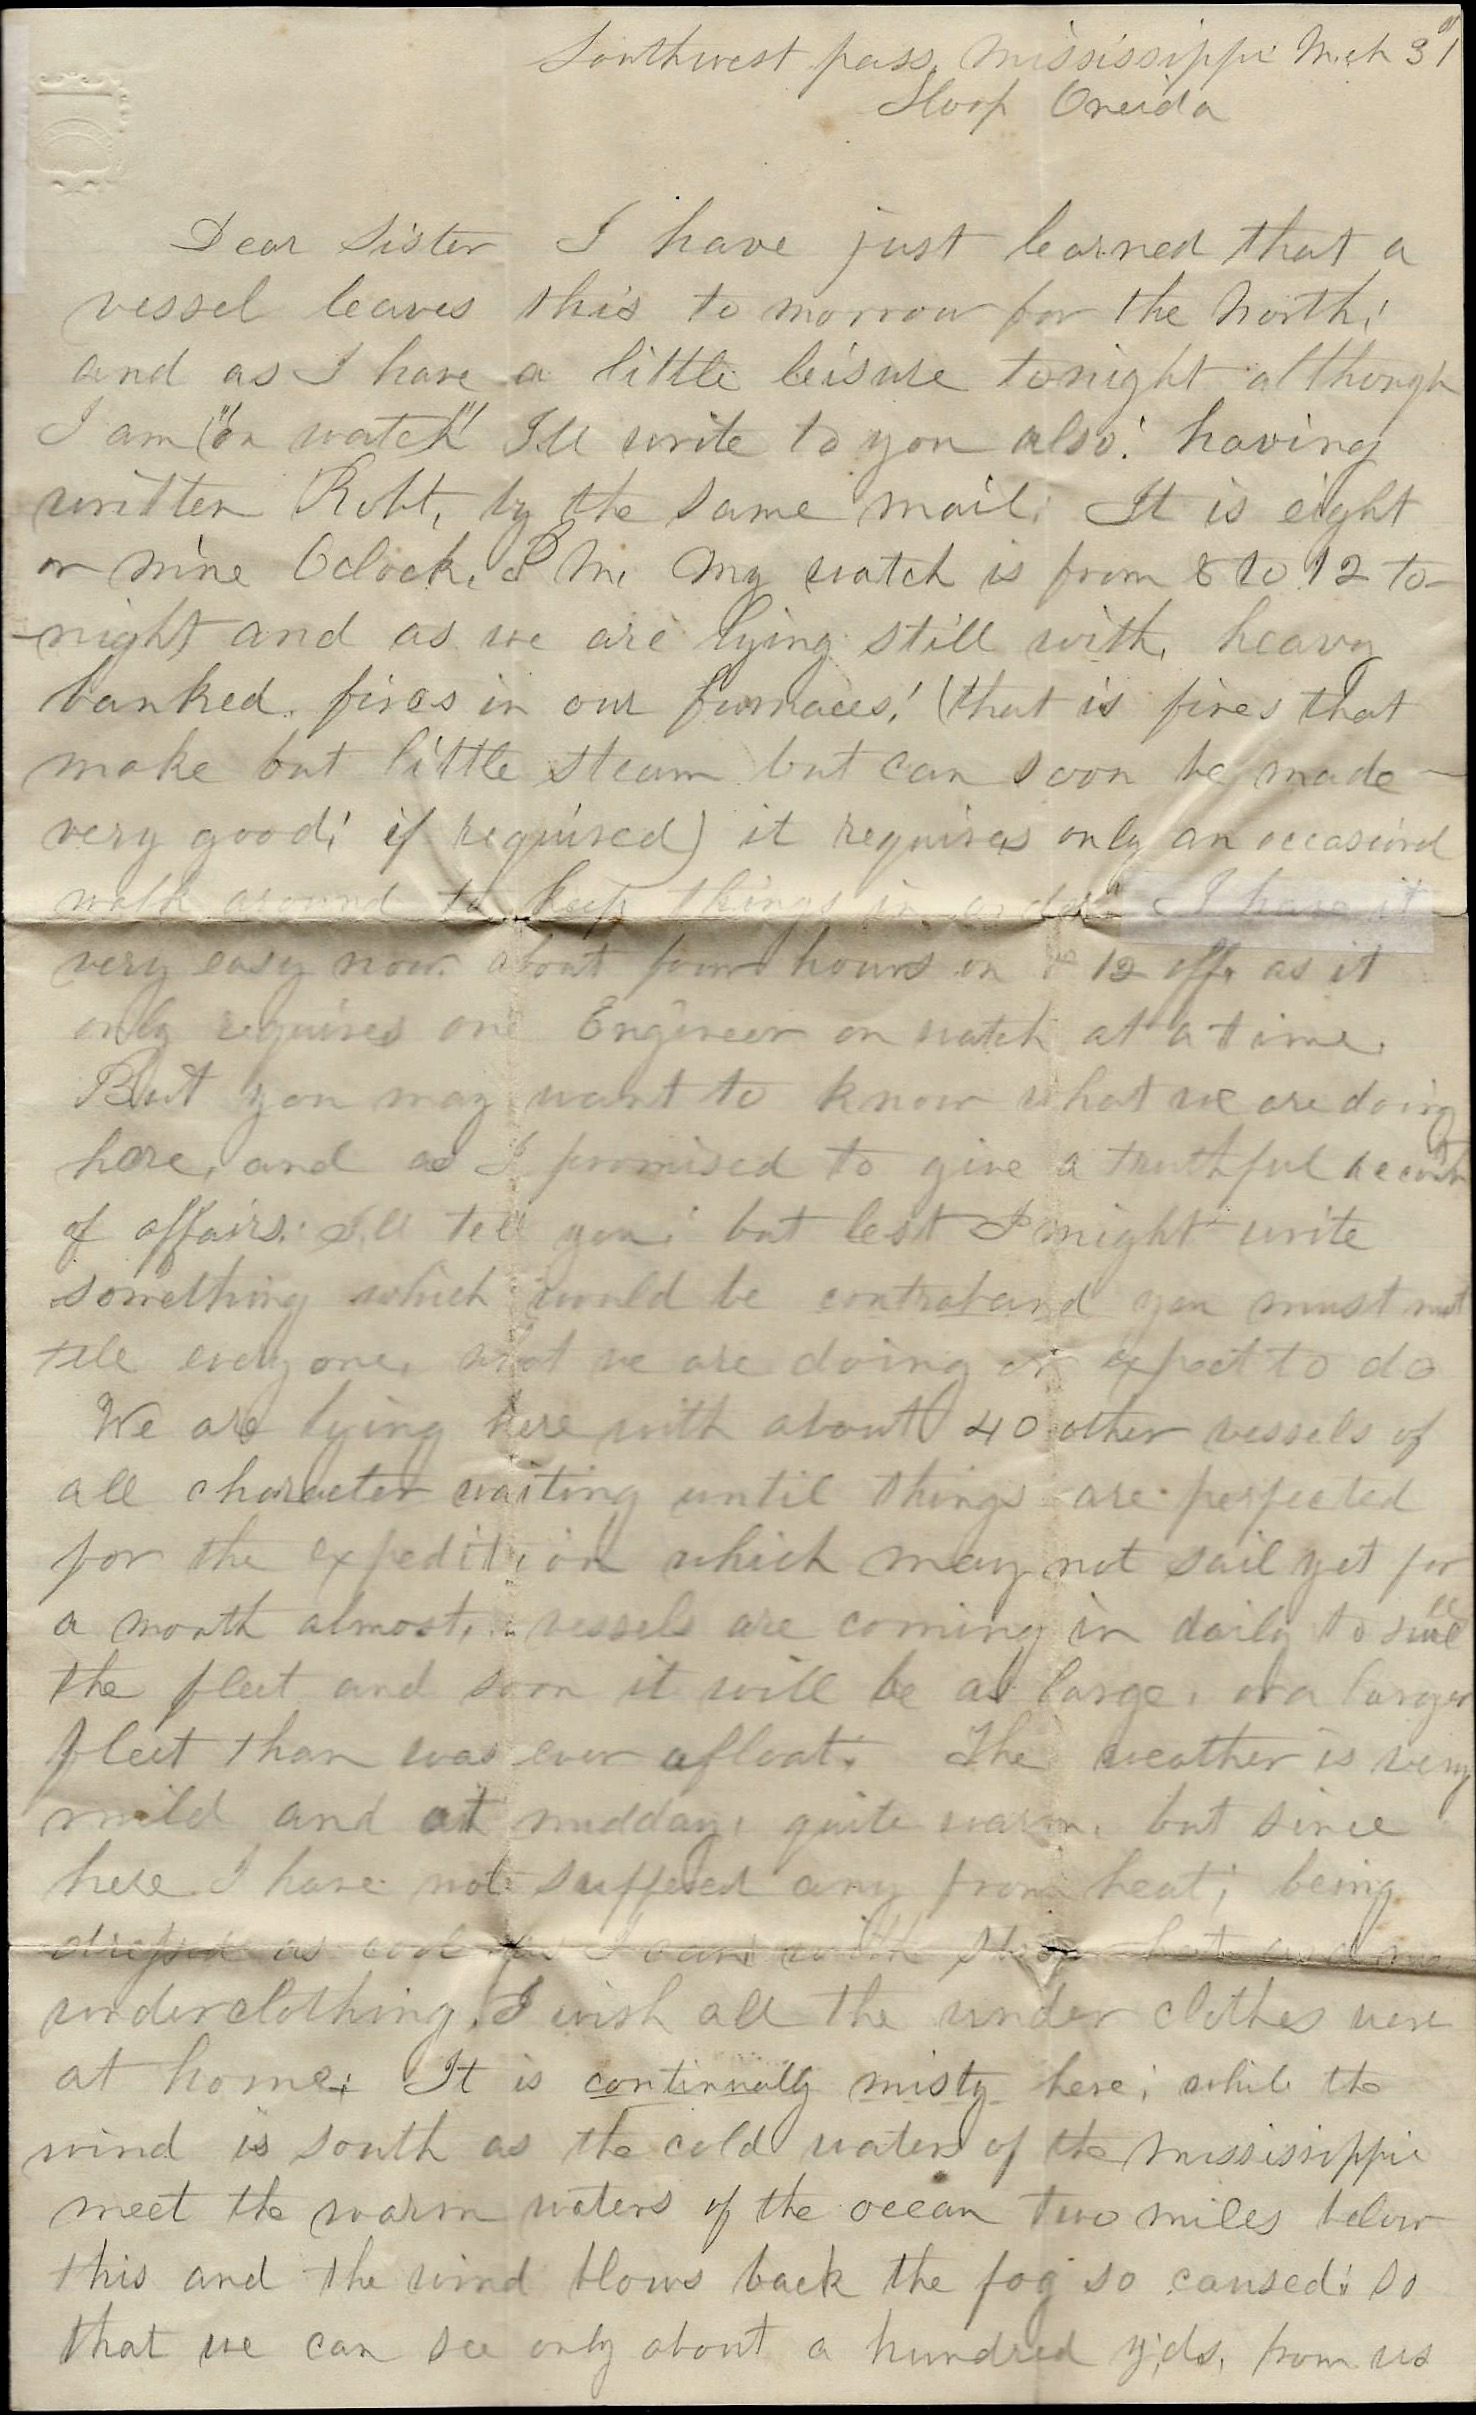 Southwest pass, Mississippi Mch 31st
Sloop Oneida
Dear Sister I have just learned that a
vessel leaves this to morrow for the North;
and as I have a little leisure tonight although
I am "on watch" I'll write to you also; having
written Robt, by the same mail. It is eight
or nine Oclock, P M, My watch is from 8 to 12 to-
-night and as we are lying still with, heavy
banked fires in our furnaces; (that is fires that
make but little steam but can soon be made
very good; if required) it requires only an occasional
walk around to keep things in order. I have it
very easy now about four hours on & 12 off, as it
only requires one Engineer on watch at a time.
But you may want to know what we are doing
here, and as I promised to give a truthful account
of affairs: I'll tell you; but lest I might write
something which would be contraband you must not
tell everyone, what we are doing or expect to do
We are lying here with about 40 other vessels of
all character waiting until things are perfected
for the expedition which may not sail yet for
a month almost, vessels are coming in daily to swell
the fleet and soon it will be as large, or a larger
fleet than was ever afloat. The weather is very
mild and at midday, quite warm, but since
here I have not suffered any from heat; being
dressed as cool as I can with straw hat and no
underclothing, I wish all the under clothes were
at home; It is continually misty here; while the
wind is south as the cold waters of the Mississippie
meet the warm waters of the ocean two miles below
this and the wind blows back the fog so caused; so
that we can see only about a hundred y'ds, from us